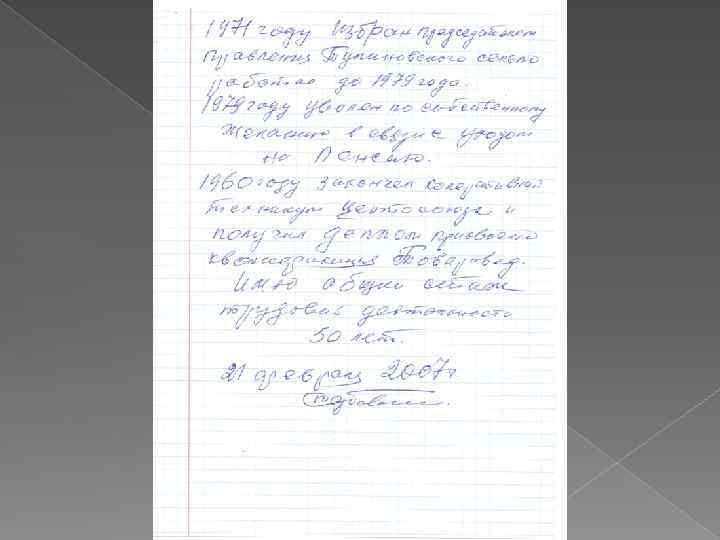 1971 году Избран председателем
правления Тупиковского сельпо
работал до 1979 года.
1979 году уволен по собственному
желанию в связи с уходом
на Пенсию.
1960 году закончел коперативный
техникум Центосоюза и
получил деплом присвоено
квалификация Товаровед.
Имею общий стаж
трудовой деятельности
50 лет.
21 февраля 2007г